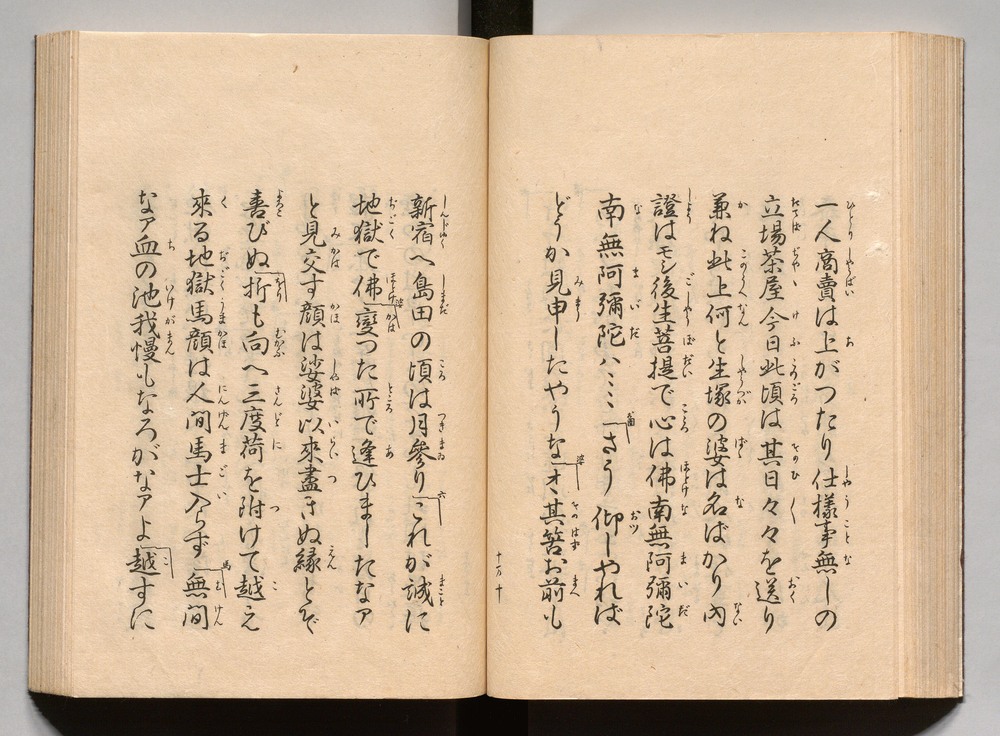 一人商賣は上がつたり仕様事無しの
立場茶屋今日此頃は其日々々を送り
兼ね此上何と生塚の婆は名ばかり内
證はモシ後生菩提で心は佛南無阿彌陀
南無阿彌陀ハヽヽさう仰しやれば
どうか見申したやうなオヽ其筈お前も
新宿へ島田の頃は月參りこれが誠に
地獄で佛變つた所で逢ひましたなア
と見交す顔は娑婆以來盡きぬ縁とぞ
喜びぬ折も向へ三度荷を附けて越え
來る地獄馬顔は人間馬士入らず無間
なア血の池我慢もなろがなアよ越すに